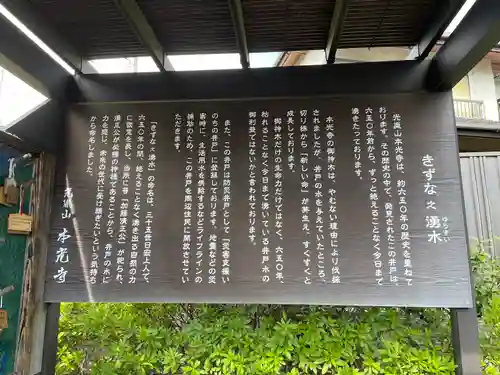 きずな之湧水
ゆらすい
光嵐山本光寺は、約六五〇年の歴史を重ねて
おります。その歴史の中で、発見されたこの井戸は、
六五〇年前から、ずっと絶えることなく今日まで
湧きたっております。
本光寺の御神木は、やむない理由により伐採
されましたが、井戸の水を与えていたところ、
切り株から「新しい命」が芽生え、すくすくと
成長しております。
御神木だけの生命力だけではなく、六五〇年、
枯れることなく今日まで湧いている井戸の水の
御利益ではないかと言われております。
また、この井戸は防災井戸として「災害支援い
のちの井戸」に登録しております。地震などの災
害時に、生活用水を供給するなどライフラインの
補助のため、この井戸を周辺住民に開放させてい
ただきます。
「きずな之湧水」の命名は、三十五世日安上人で、
六五〇年の間、絶えることなく湧き出る自然の力
に敬意を表し、当所に「加藤清正公」が祀られ、
清正公が必勝の神様であることから、井戸の水の
力を感じ、未来の世代に受け継ぎたいという気持ち
から命名しました。
本光寺